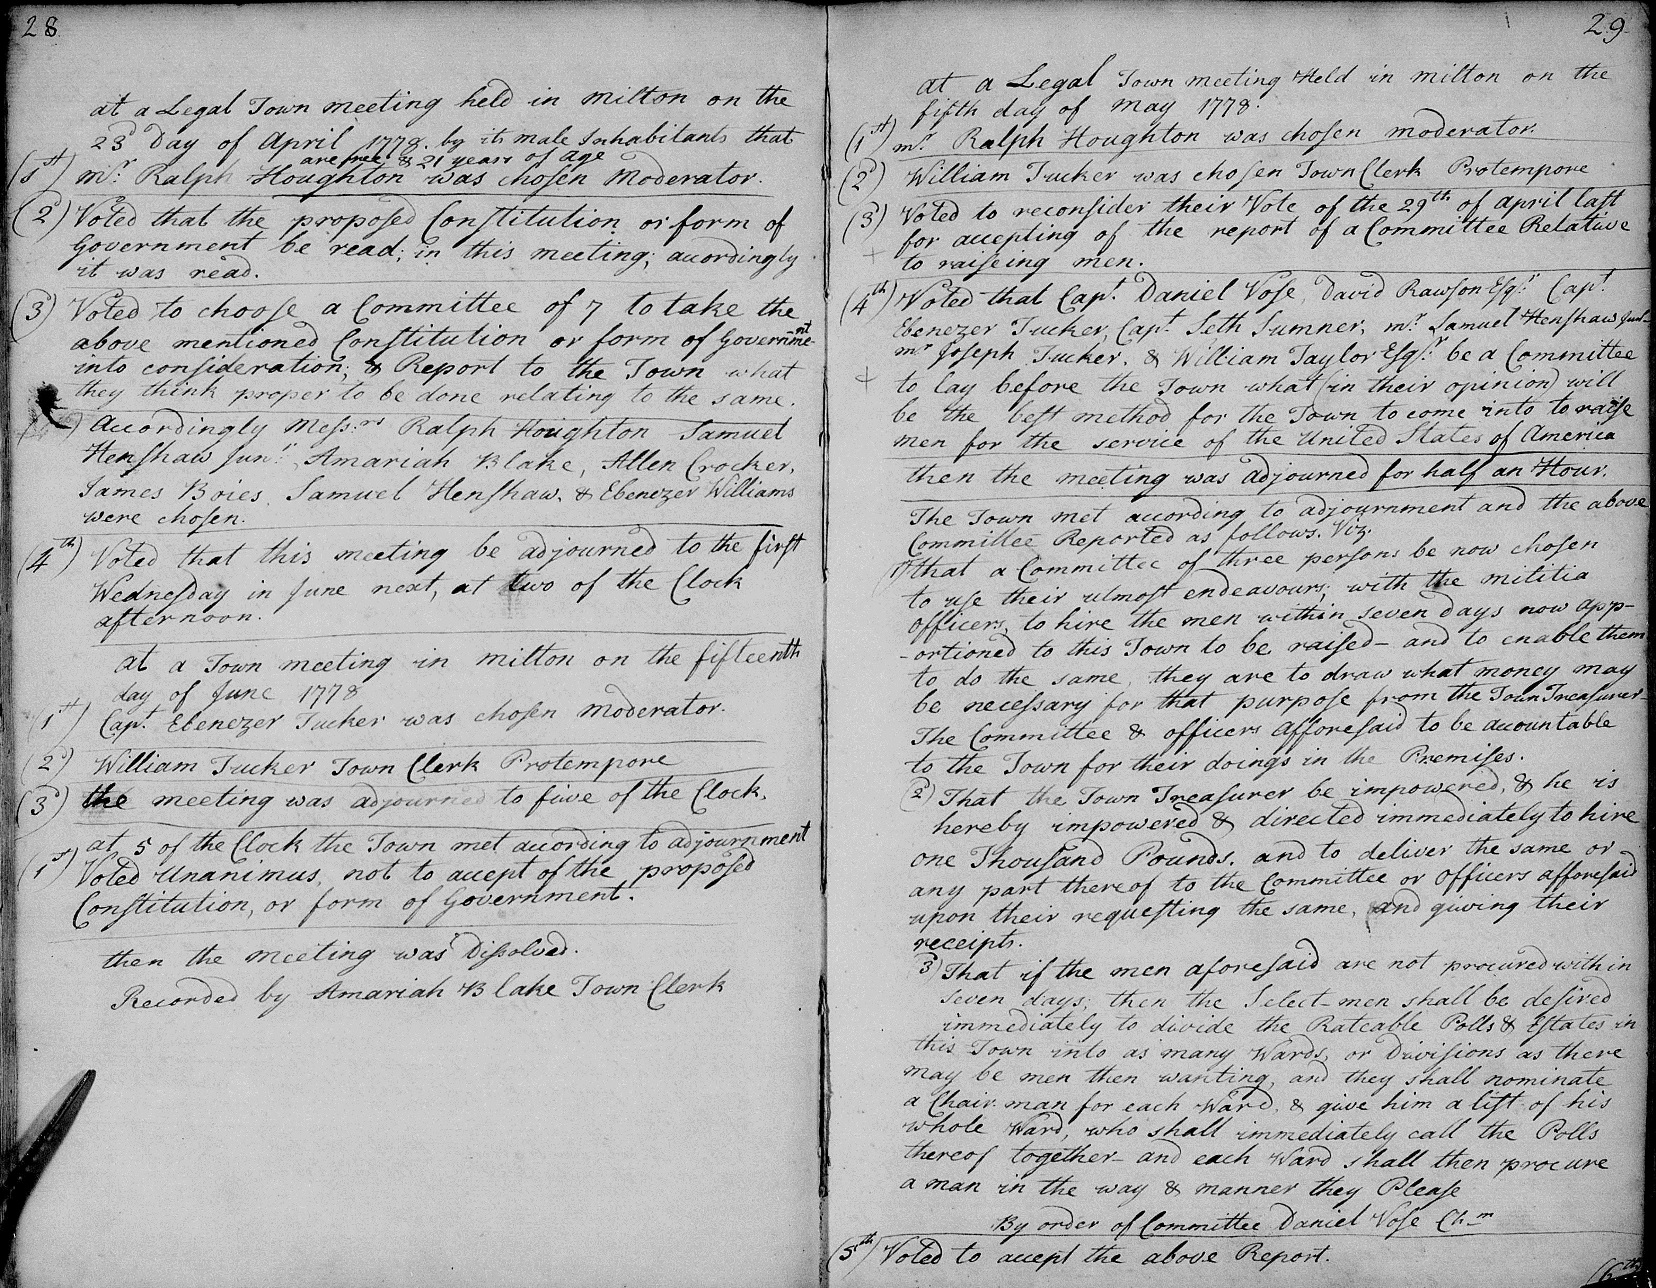 28
at a Legal Town meeting held in milton on the
23d Day of April 1778. by its male Inhabitants that
are free & 21 years of age
(1st) mr. Ralph Houghton was chosen Moderator.
(2d) Voted that the proposed Constitution or form of
Government be read; in this meeting; accordingly
it was read.
(3d) Voted to choose a Committee of 7 to take the
above mentioned Constitution or form of Government
into consideration; & Report to the Town what
they think proper to be done relating to the same.
Accordingly Messrs. Ralph Houghton Samuel
Henshaw Junr. Amariah Blake, Allen Crocker,
James Boies, Samuel Henshaw, & Ebenezer Williams
were chosen.
(4th) Voted that this meeting be adjourned to the first
Wednesday in June next, at two of the Clock
afternoon.
at a Town meeting in milton on the fifteenth
day of June 1778
(1st) Capt. Ebenezer Tucker was chosen moderator.
(2d) William Tucker Town Clerk Protempore
(3d) the meeting was adjourned to five of the Clock.
at 5 of the Clock the Town met acording to adjournment
(1st) Voted Unanimus, not to accept of the proposed
Constitution, or form of Government.
then the meeting was Dissolved.
Recorded by Amariah Blake Town Clerk
29
at a Legal Town meeting Held in milton on the
fifth day of may 1778.
(1st) mr. Ralph Houghton was chosen moderator.
(2d) William Tucker was chosen Town Clerk Protempore
(3d) Voted to reconsider their Vote of the 29th of april last
for accepting of the report of a Committee Relative
+ to raiseing men.
(4th) Voted that Capt. Daniel Vose, David Rawson Esqr. Capt.
Ebenezer Tucker, Capt. Seth Sumner, mr. Samuel Henshaw Junr
mr Joseph Tucker, & William Taylor Esqr. be a Committee
+ to lay before the Town what (in their opinion) will
be the best method for the Town to come into to raise
men for the service of the United States of America
then the meeting was adjourned for half an Hour.
The Town met according to adjournment and the above
Committee Reported as follows. Viz.
1) that a Committee of three persons be now chosen
to use their utmost endeavours; with the militia
officers, to hire the men within seven days now app-
-ortioned to this Town to be raised- and to enable them
to do the same, they are to draw what money may
be necessary for that purpose from the Town Treasurer-
The Committee & officers afforesaid to be accountable
to the Town for their doings in the Premises.
2d) That the Town Treasurer be impowered, & he is
hereby impowered & directed immediately to hire
one Thousand Pounds, and to deliver the same or
any part thereof to the Committee or officers afforesaid
upon their requesting the same, and giving their
receipts.
3d) That if the men aforesaid are not procured within
seven days; then the Select-men shall be desired
immediately to divide the Rateable Polls & Estates in
this Town into as many Wards, or Divisions as there
may be men then wanting, and they shall nominate
a Chair man for each Ward, & give him a list of his
whole Ward, who shall immediately call the Polls
thereof together- and each Ward shall then procure
a man in the way & manner they Please
By order of Committee Daniel Vose Chm
(5th) Voted to accept the above Report.
(6th